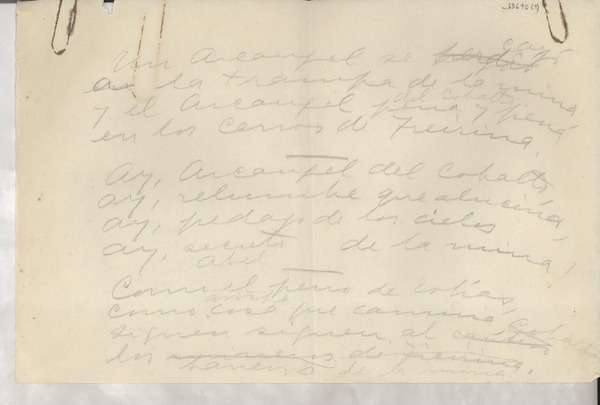 Un Arcangel se cayó
a la trampa de la mina
y el Arcangel del cobalto pena y pena
en los cerros de Freirina.
Ay, Arcangel del Cobalto,
ay, relumbre que alucina,
ay, pedazo de los cielos
ay, secreto de la mina!
Como el perro de Tobías,
como cosa que camina,
siguen siguen al Cobalto
los mineros de Freirina.
de la mina